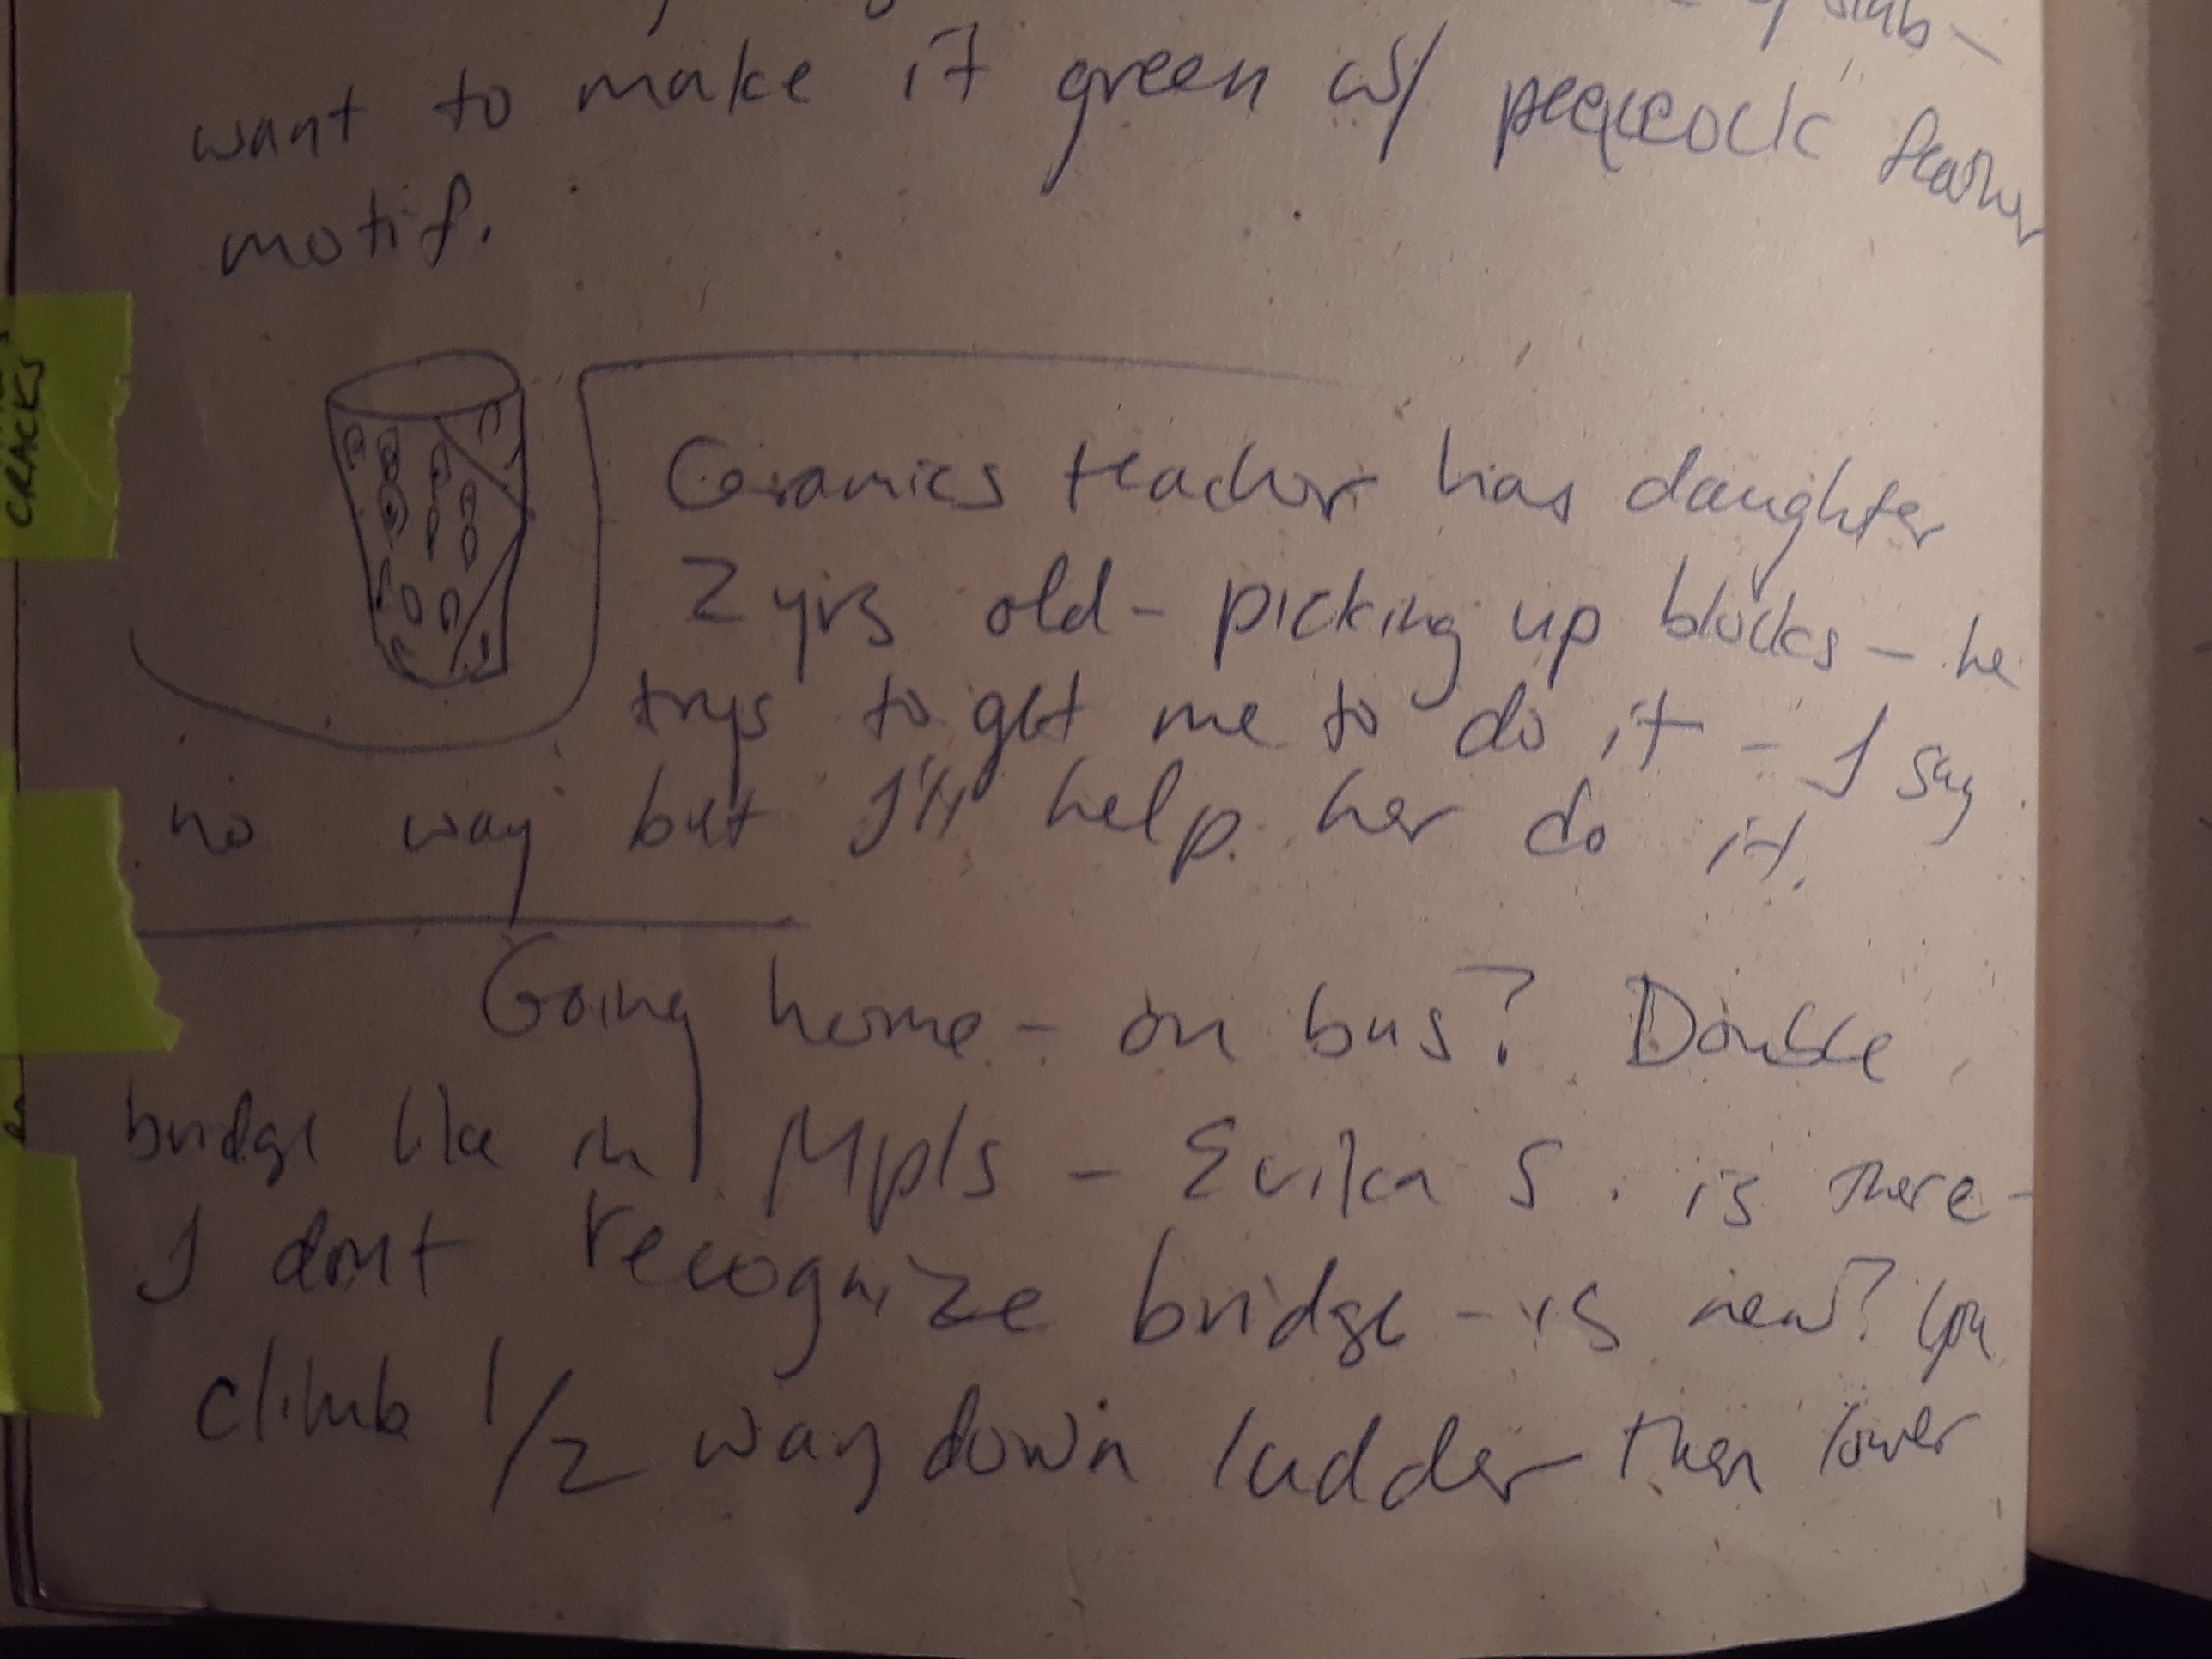 slab-
want to make it green w/ peacock feather
motif.
CRACKS
Ceramics teacher has daughter
2 yrs old - picking up blocks - he
trys to get me to do it - I say
no way but I'll help her do it.
Going home - on bus? Double
bridge like in Mpls - Erika S. is there -
I dont recognize bridge - is new? You
climb 1/2 way down ladder then lower